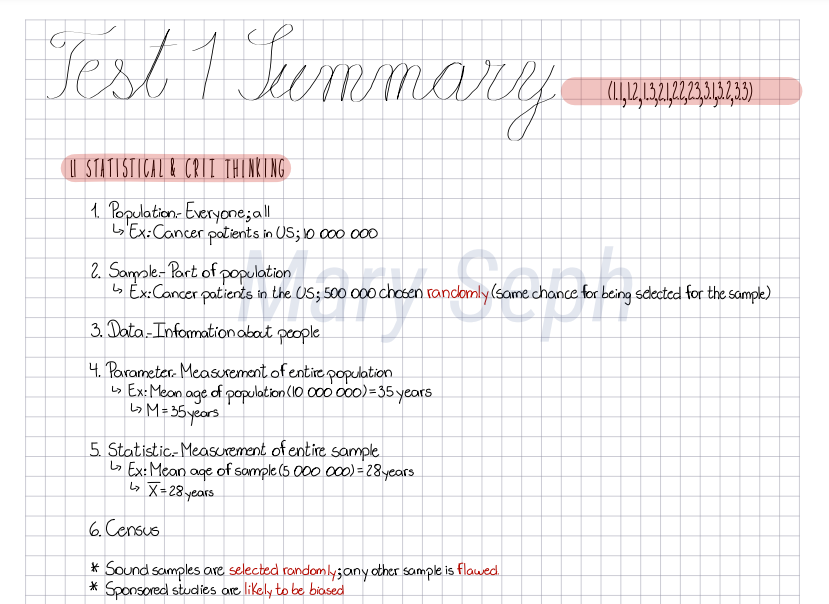 Test 1 Summary
(1.1,1.2,1.3,2.1,2.2,2.3,3.1,3.2,3.3)
1.1 STATISTICAL & CRIT THINKING
1. Population:- Everyone; all
↳ Ex: Cancer patients in US; 10 000 000
2. Sample:- Part of population
↳ Ex: Cancer patients in the US; 500 000 chosen randomly (same chance for being selected for the sample)
3. Data:- Information about people
4. Parameter:- Measurement of entire population
↳ Ex: Mean age of population (10 000 000) = 35 years
↳ M = 35 years
5. Statistic:- Measurement of entire sample
↳ Ex: Mean age of sample (5 000 000) = 28 years
↳ X̅ = 28 years
6. Census
* Sound samples are selected randomly; any other sample is flawed.
* Sponsored studies are likely to be biased
Mary Seph